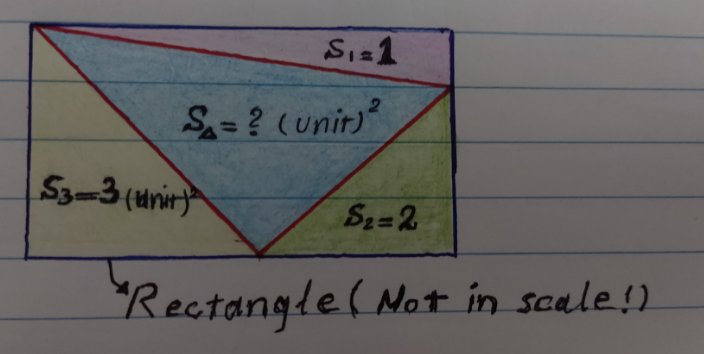 S₁=1
S△=? (unit)²
S₃=3 (unit)²
S₂=2
Rectangle (Not in scale!)